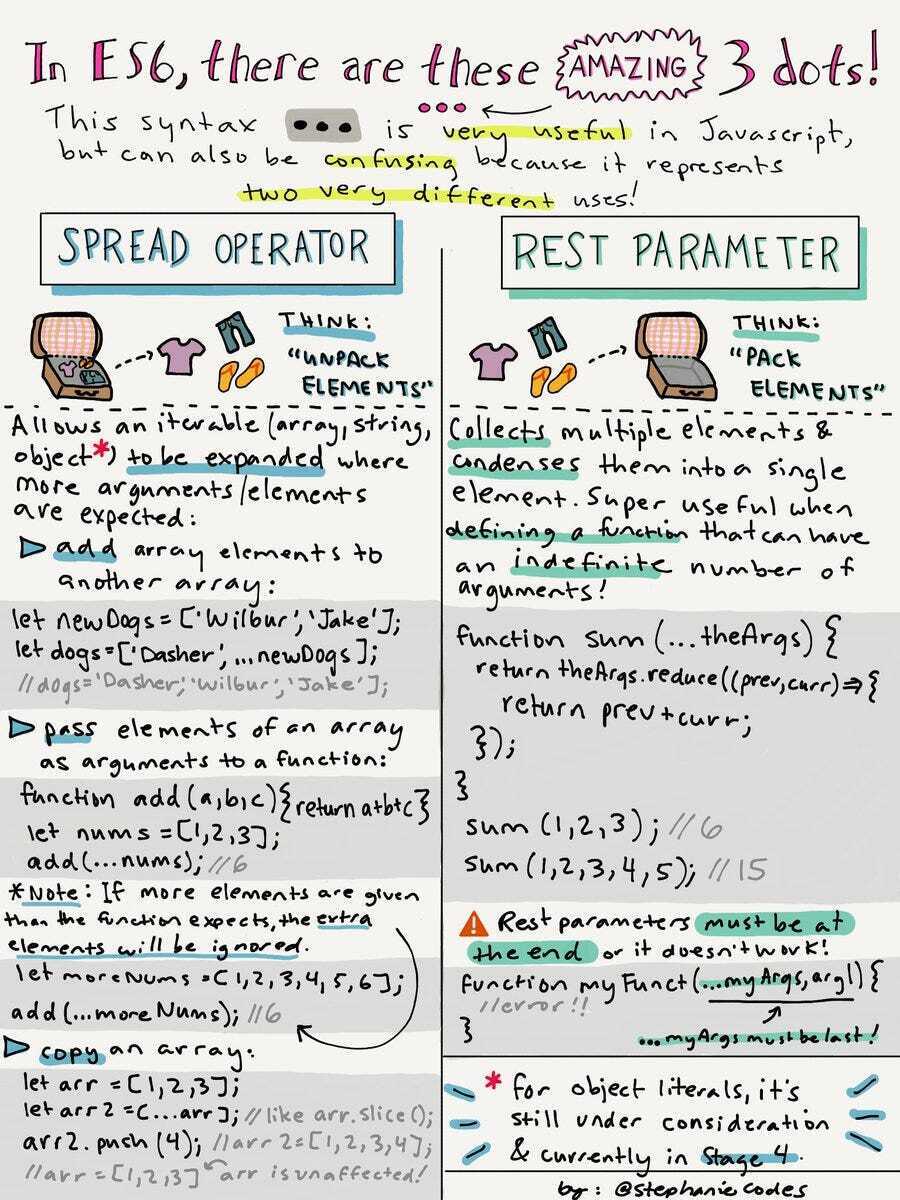 In ES6, there are these AMAZING 3 dots!
This syntax ... is very useful in Javascript,
but can also be confusing because it represents
two very different uses!
SPREAD OPERATOR
THINK:
"UNPACK
ELEMENTS"
Allows an iterable (array, string,
object*) to be expanded where
more arguments/elements
are expected:
add array elements to
another array:
let newDogs = ['Wilbur', 'Jake'];
let dogs = ['Dasher', ...newDogs];
//dogs = 'Dasher', 'Wilbur', 'Jake'];
pass elements of an array
as arguments to a function:
function add (a,b,c) {return a+b+c}
let nums = [1,2,3];
add(...nums); //6
*Note: If more elements are given
than the function expects, the extra
elements will be ignored.
let moreNums = [1,2,3,4,5,6];
add(...moreNums); //6
copy an array:
let arr = [1,2,3];
let arr2 = [...arr]; //like arr.slice();
arr2.push(4); //arr2=[1,2,3,4];
//arr = [1,2,3] arr is unaffected!
REST PARAMETER
THINK:
"PACK
ELEMENTS"
Collects multiple elements &
condenses them into a single
element. Super useful when
defining a function that can have
an indefinite number of
arguments!
function sum (...theArgs) {
return theArgs.reduce((prev,curr) => {
return prev+curr;
});
}
sum (1,2,3); //6
sum (1,2,3,4,5); //15
! Rest parameters must be at
the end or it doesn't work!
function myFunct(...myArgs, arg1) {
//error!!
}
...myArgs must be last!
* for object literals, it's
still under consideration
& currently in Stage 4.
by: @stephaniecodes